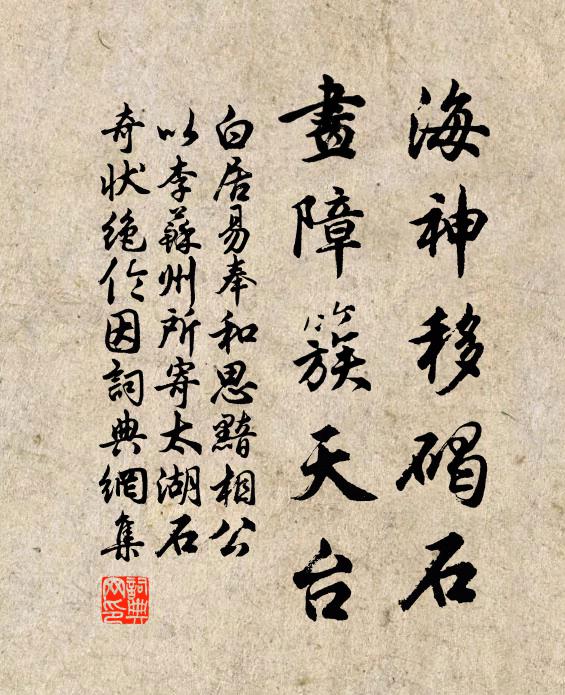 海神移碣石
畫障簇天台
白居易奉和思黯相公
以李蘇州所寄太湖石
奇狀絶伦因詞典網集
詞典
网印